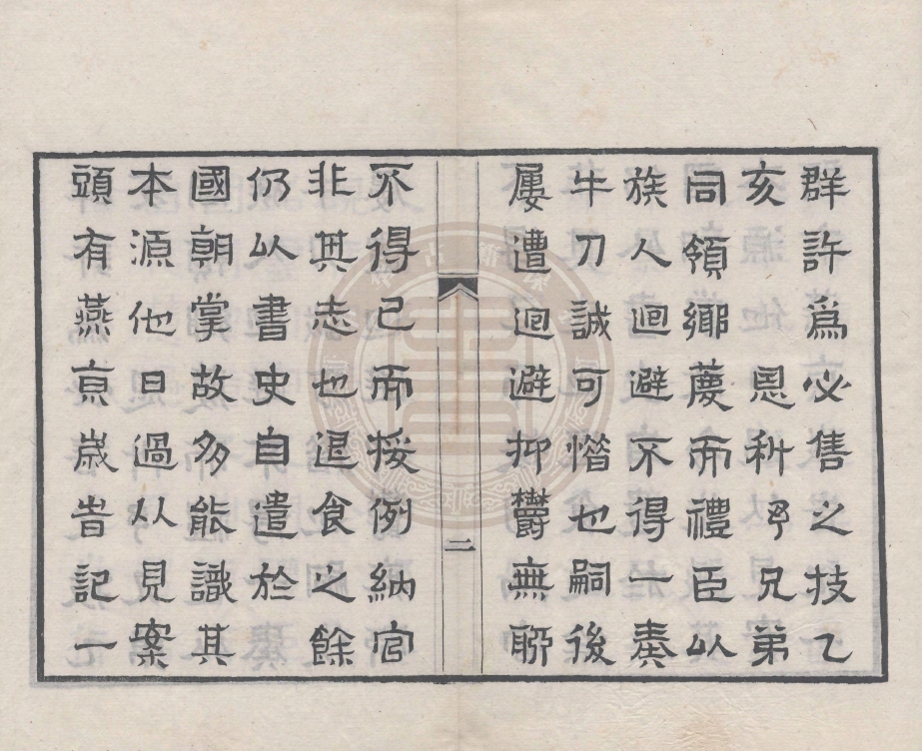 群許爲必售之技乙
亥　恩科予兄弟
同領鄉薦而禮臣以
族人迴避不得一奏
牛刀誠可惜也嗣後
屢遭迴避抑鬱無聊
二
不得已而援例納官
非其志也退食之餘
仍以書史自遣於
國朝掌故多能識其
本源他日過從見案
頭有燕京歲旹記一